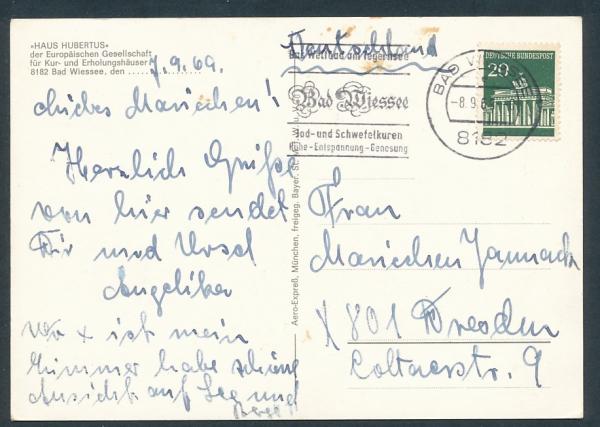 »HAUS HUBERTUS«
der Europäischen Gesellschaft
für Kur- und Erholungshäuser
8182 Bad Wiessee, den 7.9.69.
Liebes Mariechen!
Herzlich Grüße
von hier sendet
Dir und Ursel
Angelika
Wo x ist mein
Zimmer habe schöne
Aussicht auf See und
Berge
Aero-Expreß, München, freigeg. Bayer. St.
Deutschland
Das Weltbad am Tegernsee
Bad Wiessee
Jod- und Schwefelkuren
Ruhe-Entspannung-Genesung
BAD WIESSEE
-8.9.69
8182
20
DEUTSCHE BUNDESPOST
Frau
Mariechen
X 801 Dresden
str. 9